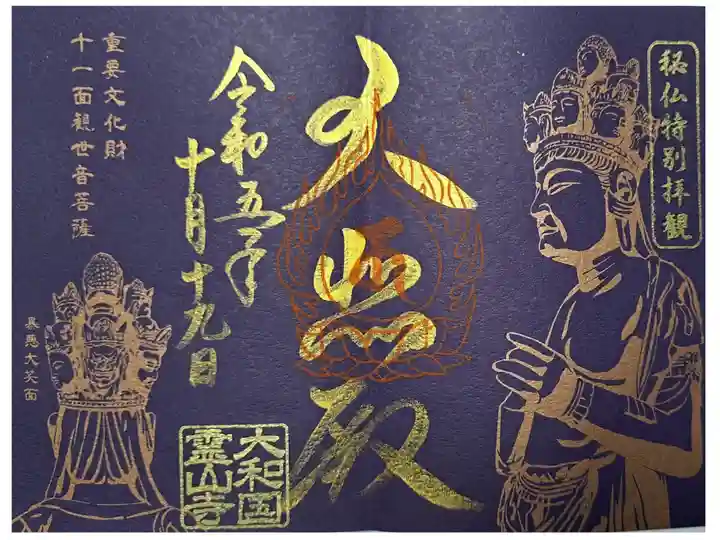 秘仏特別拝観
大悲殿
令和五年
十月十九日
大和国
霊山寺
重要文化財
十一面観世音菩薩
暴悪大笑面